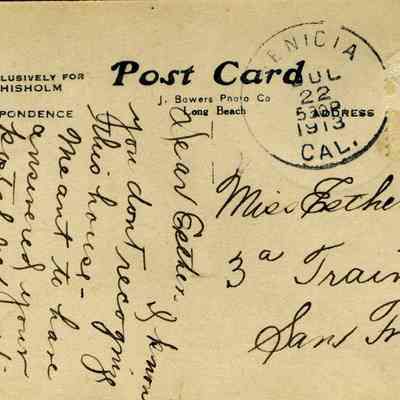 LUSIVELY FOR
HISHOLM
Post Card
J. Bowers Photo Co
Long Beach
PONDENCE
ADDRESS
ENICIA
JUL
22
1913
CAL.
Dear Esther.
I know
you don't recognize
this house-
Meant to have
answered your
postal
Miss Esthe
3a Train
San Fr